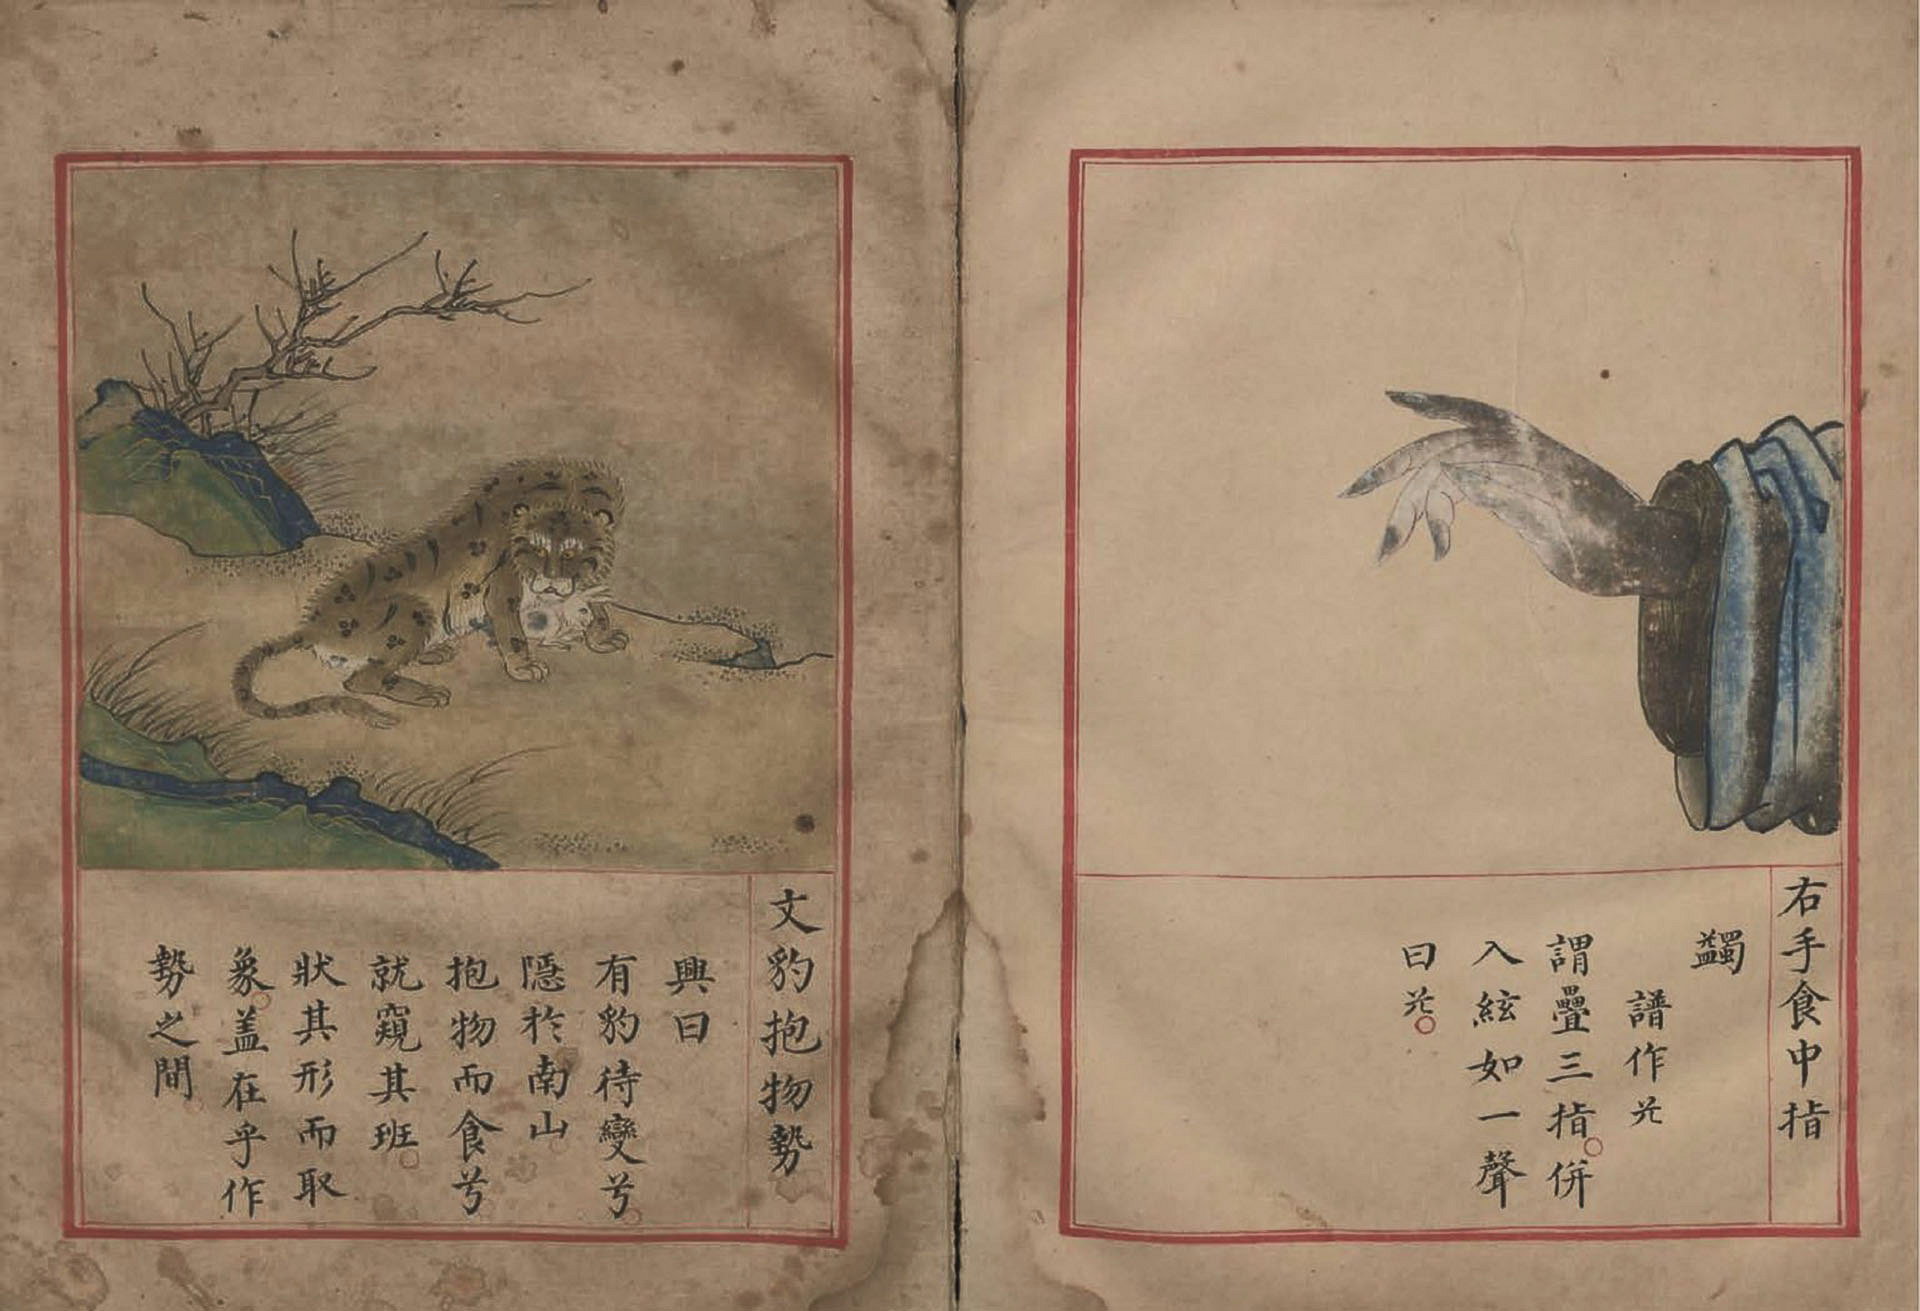 右手食中指
蠲
譜作𫇭
謂疊三指併
入絃如一聲
曰
文豹抱物勢
興曰
有豹待變兮
隱於南山
抱物而食兮
就窺其班
狀其形而取
象盖在乎作
勢之間